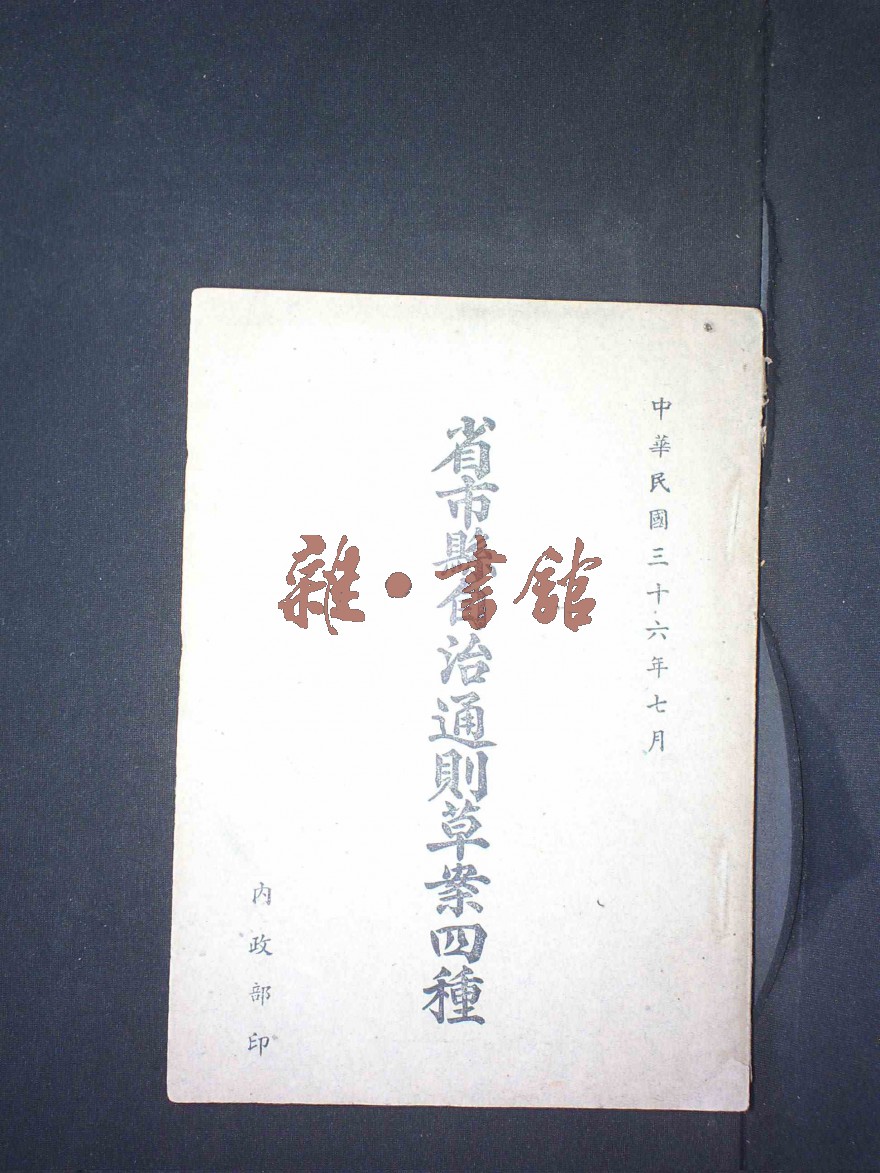 中華民國三十六年七月
省市縣自治通則草案四種
內政部印
雜·書館